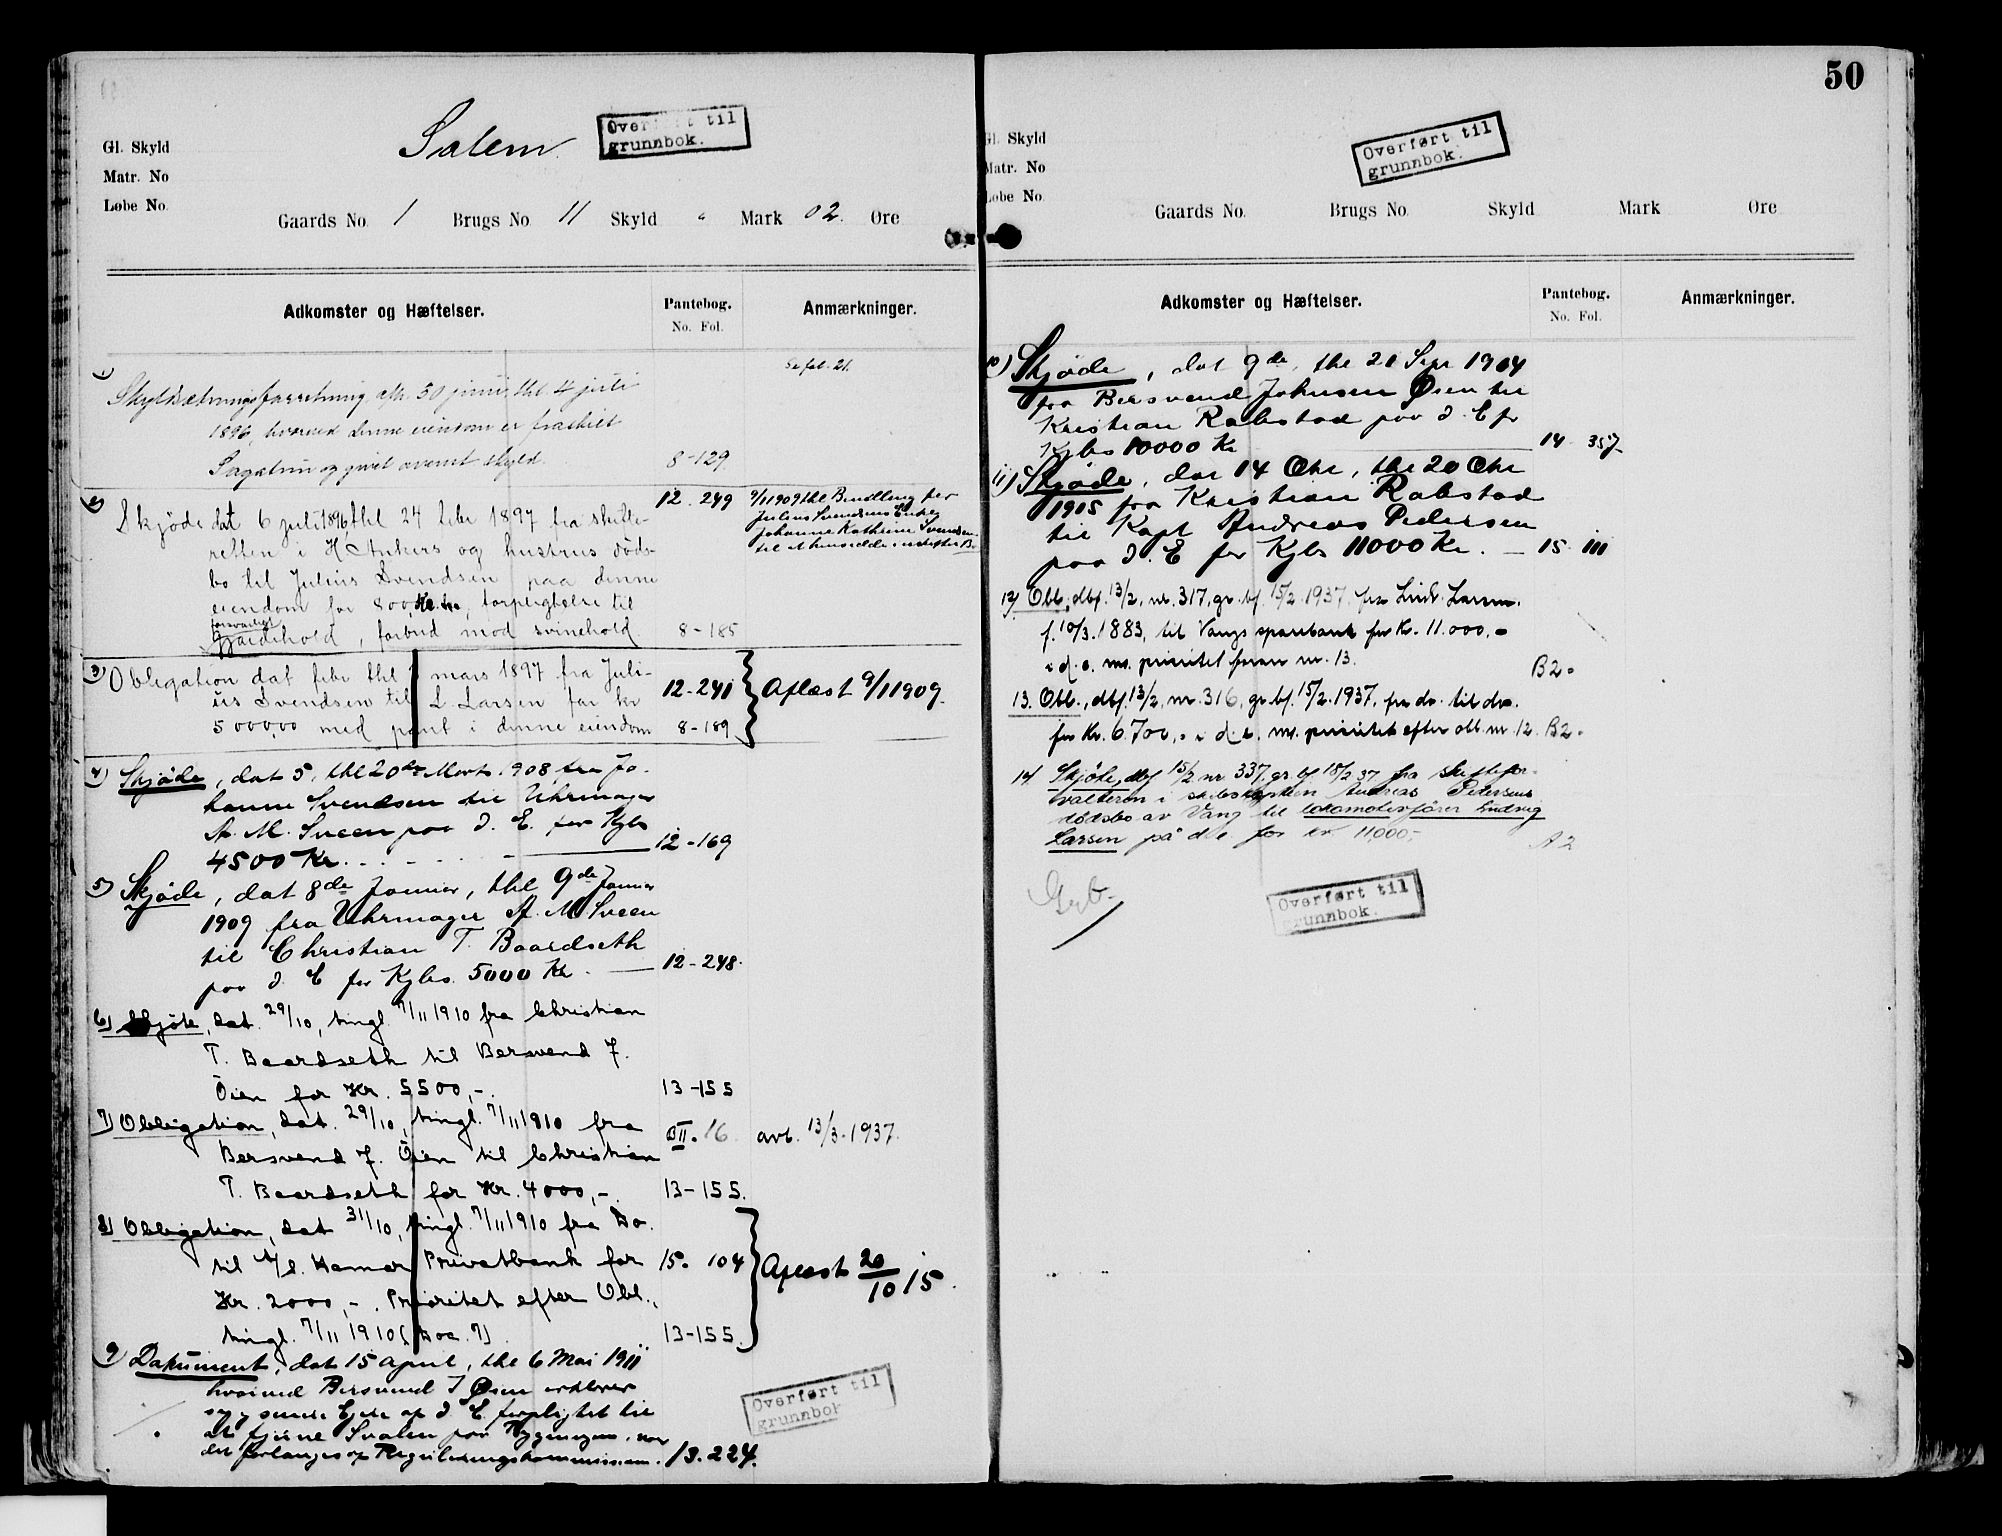 50
Salem
Overført til
grunnbok.
Gl. Skyld
Matr. No
Løbe No.
Gaards No. 1 Brugs No. 11 Skyld " Mark 02. Øre
Adkomster og Hæftelser. Pantebog. Anmærkninger.
No. Fol.
1) Se fol. 21.
Skyldsætningsforretning afh. 30 juni, thl. 4 juli
1896, hvorved denne eiendom er fraskilt
og givet overent skyld. 8-129
2) Skjöde dat 6 juli 1896, thl 24 febr 1897 fra skifte-
retten i H. Ankers og hustrus döds-
bo til Julius Svendsen paa denne
eiendom for 800, Kr. , forpligtelse til
forsvarligt
gjærdehold, forbud mod svinehold 8-185
12-249 9/11 1909 thl Bevilling for
Julius Svendsens Enke
Johanne Kathrine Svendsen
til at hensidde i uskiftet Bo
3) Obligation dat febr thl 1 mars 1897 fra Juli-
us Svendsen til L. Larsen for kr
5000,00 med pant i denne eiendom 8-189
12-241 Aflæst 9/11 1909.
4) Skjöde, dat 5, thl 20de Marts 1908 fra Jo-
hanne Svendsen til Uhrmager
A. M. Sveen paa d. E. for Kjbs
4500 Kr. 12-169
5) Skjöde, dat 8de Januar, thl 9de Januar
1909 fra Uhrmager A. M Sveen
til Christian T. Baardseth
paa d. E for Kjbs. 5000 Kr. 12-248.
6) Skjöte, dat. 29/10, tingl. 7/11 1910 fra Christian
T. Baardseth til Bersvend J.
Öien for Kr. 5500,-. 13-155
7) Obligation, dat. 29/10, tingl. 7/11 1910 fra BII. 16. avl. 13/3-1937.
Bersvend J. Öien til Christian
T. Baardseth for Kr. 4000,-. 13-155.
8) Obligation, dat 31/10, tingl. 7/11 1910 fra Do.
til A/S. Hamar Privatbank for 15. 104 Aflæst 20/10 15.
Kr. 2000,-. Prioritet efter Obl.,
tingl. 7/11 1910 (Doc. 7). 13-155.
9) Dokument, dat 15 April, thl 6 Mai 1911
hvorved Bersvend J Øien erklærer
sig og senere Ejere af d. E. forpligtet til
at fjerne Svalen paa Bygningen, naar
det forlanges af Reguleringskommissionen. 13.224.
Overført til
grunnbok
Overført til
grunnbok.
Gl. Skyld
Matr. No
Løbe No.
Gaards No. Brugs No. Skyld Mark Øre
Adkomster og Hæftelser. Pantebog. Anmærkninger.
No. Fol.
10) Skjöde, dat 9de, thl 21 Sepr 1914
fra Bersvend Johnsen Øien til
Kristian Rabstad paa d. E for
Kjbs 10000 Kr 14-357
11) Skjöde, dat 14 Okt, thl 20 Okt
1915 fra Kristian Rabstad
til Kapt Andreas Pedersen
paa d. E for Kjbs 11000 Kr. 15-111
12) Obl., dbf. 13/2, nr. 317, gr. bf. 15/2. 1937. fra Ludv. Larsen.
f. 10/3. 1883, til Vangs sparebank for Kr. 11.000,-
i d. e. m. prioritet foran nr. 13. B2.
13. Obl., dbf. 13/2, nr. 316, gr. bf. 15/2. 1937, fra do. til do.
for Kr. 6.700,- i d. e. m. prioritet efter obl. nr. 12. B2.
14) Skjöte, dbf 15/2 nr 337, gr. bf 18/2 37 fra skiftefor-
valteren i skibskaptein Andreas Petersens
dödsbo av Vang til lokomotivförer Ludvig
Larsen på d e for kr 11,000,- A2
Overført til
grunnbok.